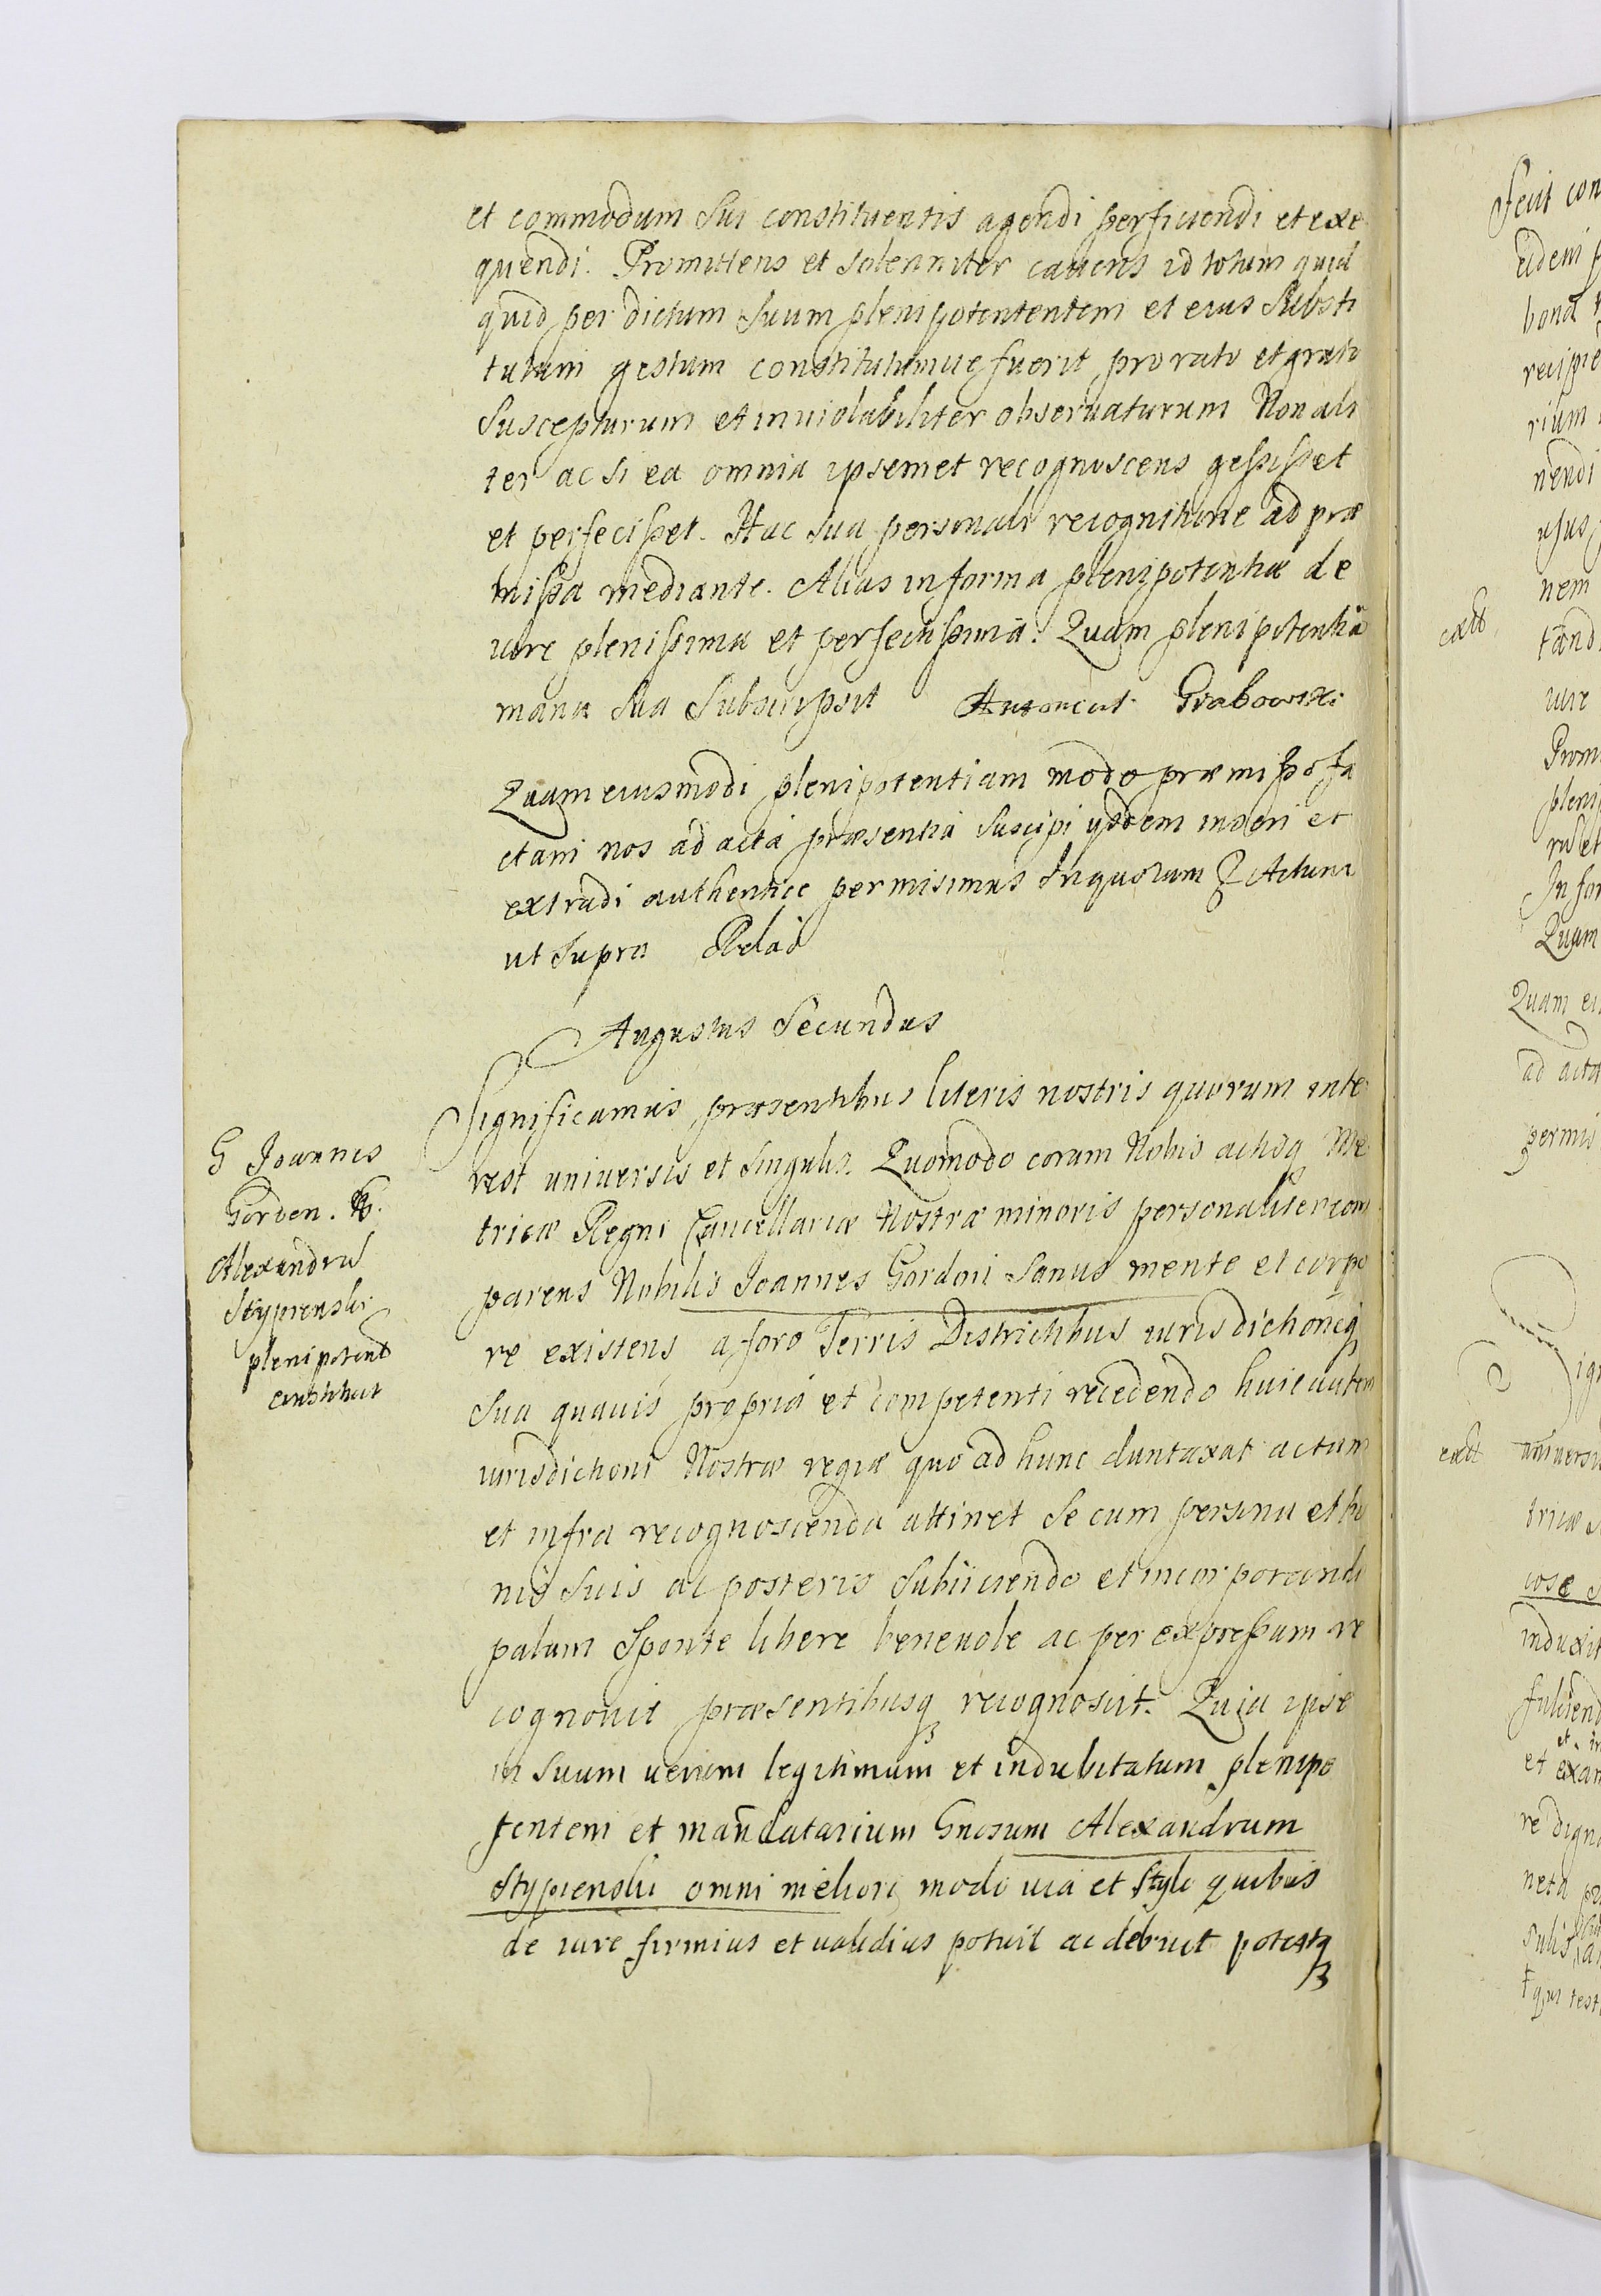 et commodum sui constituentis agendi perficiendi et exe
quendi. Promittens et solenniter cavens id totum quid
quid per dictum suum plenipotententem et eius substi
tutum gestum constitutumue fuerit pro rato et grato
suscepturum et inuiolabiliter obseruaturum Non ali
ter ac si ea omnia ipsemet recognoscens gessisset
et perfecisset. Hac sua personali recognitione ad præ
missa mediante. Alias in forma plenipotentiæ de
iure plenissima et perfectissima. Quam plenipotentiā
manu sua subscripsit Grabowski
Quam eiusmodi plenipotentiam modo præmisso fa
ctam nos ad acta præsentia suscipi ijsdem inseri et
extradi authentice permisimus In quorum Actum
ut supra Relaō
Augustus Secundus
Significamus præsentibus literis nostris quorum inte
rest universis et singulis. Quomodo coram Nobis actisq Me
tricæ Regni Cancellariæ Nostræ minoris personaliter com
parens Nobilis Joannes Gordon sanus mente et corpo
re existens a foro Terris Districtibus iurisdictioneq
sua quauis propria et competenti recedendo huic autem
iurisdictioni Nostræ regiæ quo ad hunc duntaxat actum
et infra recognoscenda attinet se cum persona et bo
nis suis ac posteris subiiciendo et incorporando
palam sponte libere beneuole ac per expressum re
cognouit præsentibusq recognoscit. Quia ipse
in suum uerum legitimum et indubitatum plenipo
tentem et mandatarium Gnosum Alexandrum
Stypienski omni meliori modo uia et stylo quibus
de iure firmius et ualidius potuit ac debuit potestq
G Joannes
Gordon. G.
Alexandru
Stypienski
plenipotent
constituit
Fecit con
eidem p
bona
recipie
rium
nendi
usus
nem
extt
tand
iure
Prom
pleni
In for
Quam
Quam ei
ad acta
permis
ign
extt
universi
tricæ
cosæ
induxit
et
et exan
re digna
neta